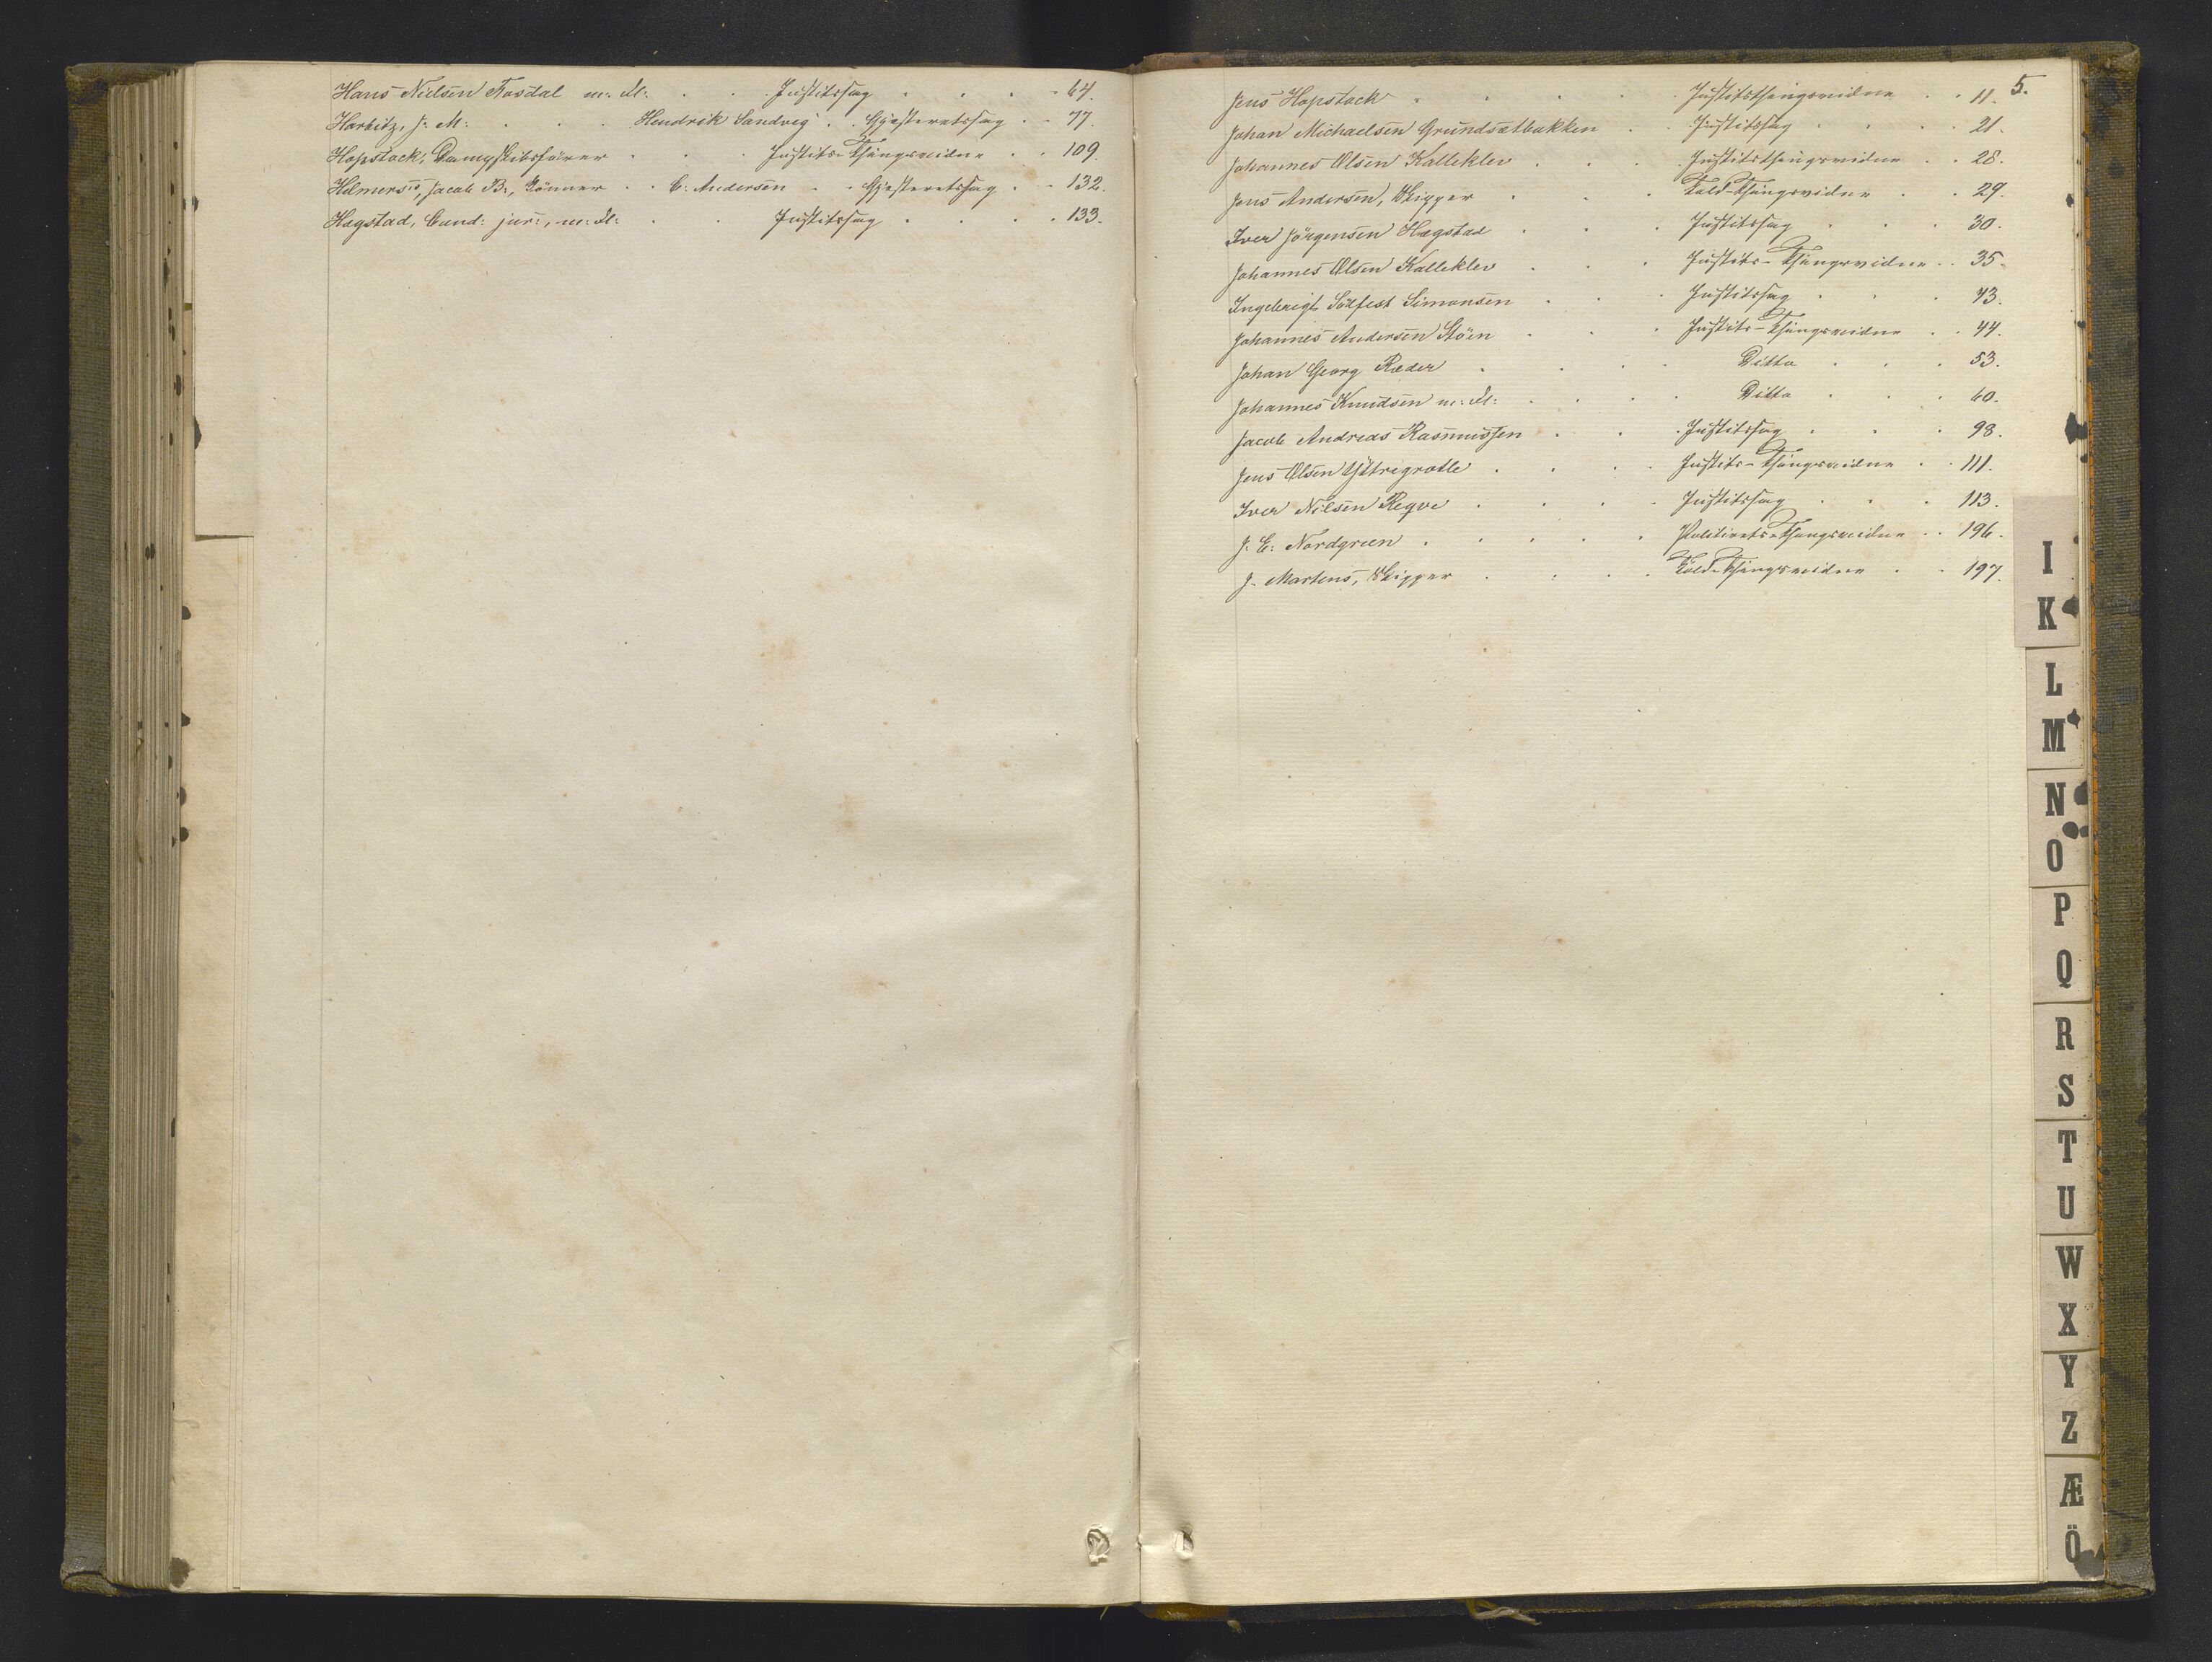 Hans Nielsen Fosdal m: Fl: . . . Justitssag . . . . 64.
Harbitz, J. M: . . . Hendrik Sandvig . . Gjæsteretssag . . 77.
Hopstock, Dampskibsfører . . . Justits-Thingsvidne . . 109.
Hilmers, Jacob B., Kjøbmand . . C: Andersen . . Gjæsteretssag . . 132.
Hagstad, Cand: jur:, m: Fl: . . . Justitssag . . . . 133.
5.
Jens Hopstock . . . . . Justitsthingsvidne . . 11.
Johan Michaelsen Grundsætbakken . . Justitssag . . . 21.
Johannes Olsen Kalleklev . . . Justitsthingsvidne . . 28.
Jens Andersen, Skipper . . . Told-Thingsvidne . . 29.
Iver Jörgensen Hægstad . . . Justitssag . . . 30.
Johannes Olsen Kalleklev . . . Justits-Thingsvidne . . 35.
Ingebrigt Solfest Simonsen . . . Justitssag . . . 43.
Johannes Andersen Stöen . . . Justits-Thingsvidne . . 44.
Johan Georg Ræder . . . . Ditto . . . 53.
Johannes Knudsen m: Fl: . . . . Ditto . . . 60.
Jacob Andreas Rasmussen . . . Justitssag . . . 98.
Jens Olsen Ytrigrotle . . . Justits-Thingsvidne . . 111.
Iver Nilsen Reqve . . . . Justitssag . . . 113.
J. E: Nordgreen . . . . . Politirets-Thingsvidne . . 196.
J. Martens, Skipper . . . . Told-Thingsvidne . . 197.
I
K
L
M
N
O
P
Q
R
S
T
U
W
X
Y
Z
Æ
Ö